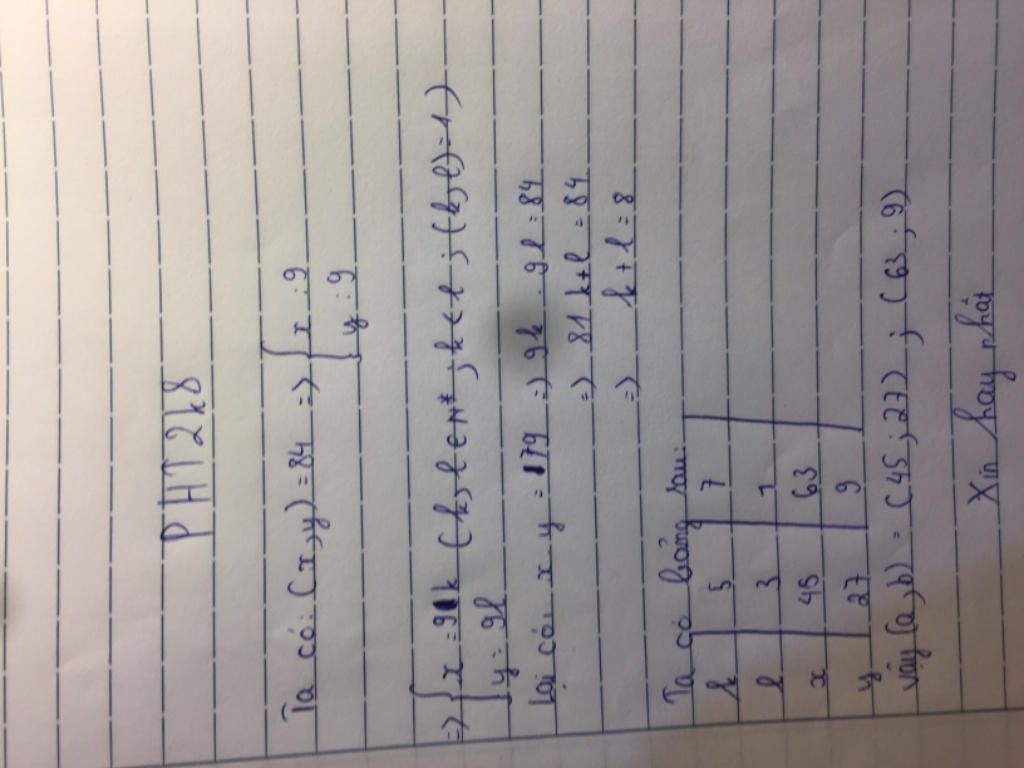 PHT2k8
Ta có: (x,y) = 84 => { x : 9
y : 9
=> { x = 9k (k,l ∈ N* ; k < l ; (k,l) = 1)
y = 9l
Lại có: x . y = 179 => 9k . 9l = 84
=> 81 k+l = 84
=> k + l = 8
Ta có bảng sau:
k 5 7
l 3 1
x 45 63
y 27 9
Vậy (a,b) = (45 ; 27) ; (63 ; 9)
Xin hay nhất